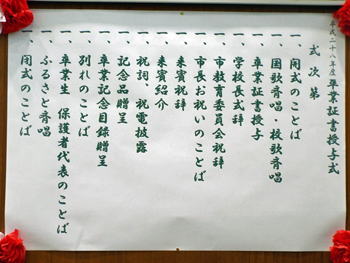 平成二十八年度 卒業証書授与式
式次第
一、開式のことば
一、国歌斉唱・校歌斉唱
一、卒業証書授与
一、学校長式辞
一、市教育委員会祝辞
一、市長お祝いのことば
一、来賓祝辞
一、来賓紹介
一、祝詞、祝電披露
一、記念品贈呈
一、卒業記念目録贈呈
一、別れのことば
一、卒業生 保護者代表のことば
一、ふるさと斉唱
一、閉式のことば